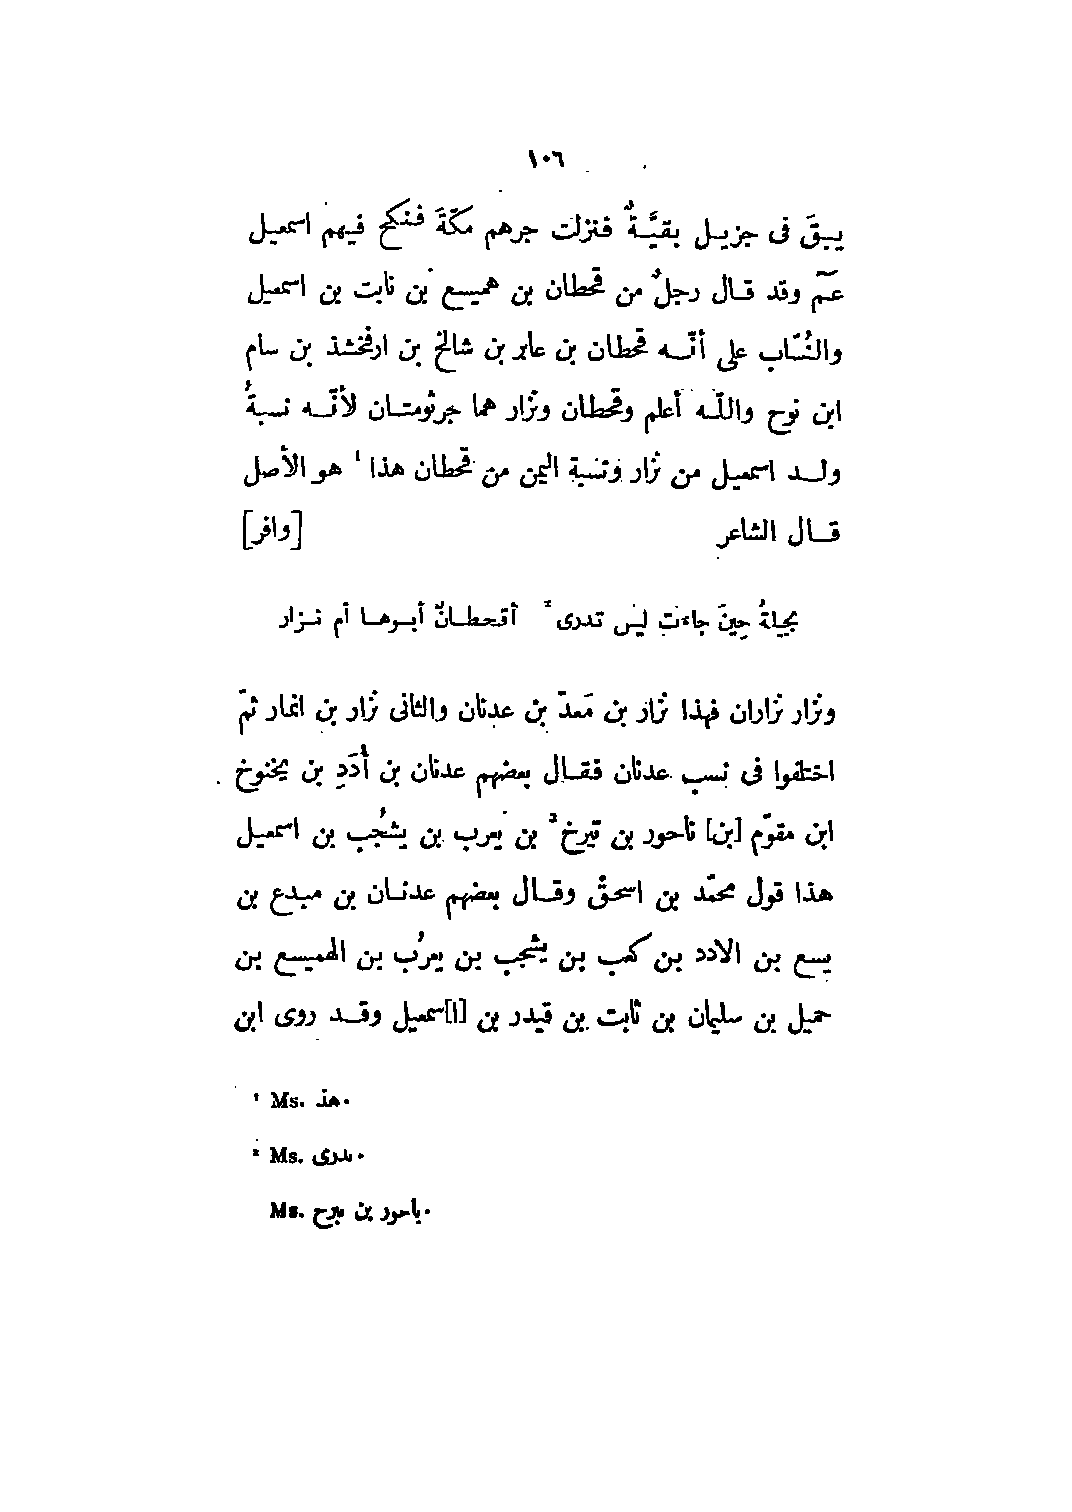 ١٠٦
يبقَ فى جزيل بقيَّةٌ فنزلت جرهم مكّةَ فنكح فيهم اسمعيل
عـمّ وقد قال رجلٌ من قحطان بن هميسع بن نابت بن اسمعيل
والنُسّاب على أنّه قحطان بن عابر بن شالخ بن ارفخشذ بن سام
ابن نوح واللّه أعلم وقحطان ونزار هما جرثومتان لأنّه نسبةُ
ولد اسمعيل من نزار ونسبة اليمن من قحطان هذا ¹ هو الأصل
قال الشاعر [وافر]
بجيلةُ حِينَ جاءت ليس تدرى ² أقحطانٌ أبوها أم نزار
ونزار نزاران فهذا نزار بن مَعدّ بن عدنان والثانى نزار بن انمار ثمّ
اختلفوا فى نسب عدنان فقال بعضهم عدنان بن أُدَدِ بن يخنوخ
ابن مقوّم [بن] ناحور بن تيرخ ³ بن يعرب بن يشُجب بن اسمعيل
هذا قول محمّد بن اسحقْ وقال بعضهم عدنان بن ميدع بن
يسع بن الادد بن كعب بن يشجب بن يعرُب بن الهميسع بن
حميل بن سليمان بن ثابت بن قيدر بن [ا]سمعيل وقد روى ابن
¹ Ms. هذ.
² Ms. ىدرى.
Ms. باحور بن ىىرح.